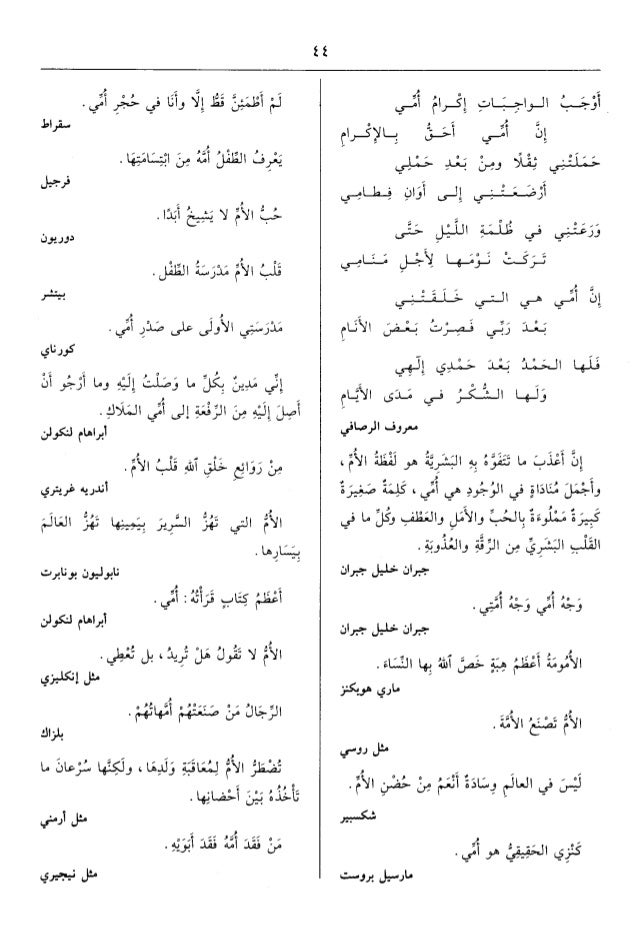 ٤٤
أَوْجَبُ الـواجِبَـاتِ إِكْـرامُ أُمِّـي
إِنَّ أُمِّـي أَحَـقُّ بِـالإِكْـرامِ
حَمَلَتْنِي ثِقْلًا ومِنْ بَعْدِ حَمْلِي
أَرْضَـعَـتْـنِـي إلى أَوَانِ فِـطـامِـي
وَرَعَتْنِي فِي ظُلْمَةِ اللَّيْلِ حَتَّى
تَـرَكَـتْ نَـوْمَـهـا لِأَجْـلِ مَـنَـامِـي
إِنَّ أُمِّـي هـي الـتـي خَـلَـقَـتْـنِـي
بَـعْـدَ رَبِّـي فَـصِـرْتُ بَـعْـضَ الأَنَـام
فَـلَـهـا الـحَـمْـدُ بَـعْـدَ حَمْدِي إِلٰهِي
وَلَـهـا الـشُّـكْـرُ فـي مَـدَى الأَيَّـامِ
معروف الرصافي
إِنَّ أَعْذَبَ ما تَتَفَوَّهُ بِهِ البَشَرِيَّةُ هو لَفْظَةُ الأُمِّ،
وأَجْمَلَ مُنَادَاةٍ في الوُجُودِ هي أُمِّي، كَلِمَةٌ صَغِيرَةٌ
كَبِيرَةٌ مَمْلُوءَةٌ بِالحُبِّ والأَمَلِ والعَطْفِ وكُلِّ ما في
القَلْبِ البَشَرِيِّ مِن الرِّقَّةِ والعُذُوبَةِ.
جبران خليل جبران
وَجْهُ أُمِّي وَجْهُ أُمَّتِي.
جبران خليل جبران
الأُمُومَةُ أَعْظَمُ هِبَةٍ خَصَّ اللهُ بِها النِّسَاءَ.
ماري هوبكنز
الأُمُّ تَصْنَعُ الأُمَّةَ.
مثل روسي
لَيْسَ في العالَمِ وِسَادَةٌ أَنْعَمُ مِنْ حُضْنِ الأُمِّ.
شكسبير
كَنْزِي الحَقِيقِيُّ هو أُمِّي.
مارسيل بروست
لَمْ أَطْمَئِنَّ قَطُّ إِلَّا وأَنَا في حُجْرِ أُمِّي.
سقراط
يَعْرِفُ الطِّفْلُ أُمَّهُ مِنَ ابْتِسَامَتِهَا.
فرجيل
حُبُّ الأُمِّ لا يَشِيخُ أَبَدًا.
دوريون
قَلْبُ الأُمِّ مَدْرَسَةُ الطِّفْلِ.
بيتشر
مَدْرَسَتِي الأُولَى على صَدْرِ أُمِّي.
كورناي
إِنِّي مَدِينٌ بِكُلِّ ما وَصَلْتُ إِلَيْهِ وما أَرْجُو أَنْ
أَصِلَ إِلَيْهِ مِنَ الرِّفْعَةِ إلى أُمِّي المَلَاكِ.
أبراهام لنكولن
مِنْ رَوَائِعِ خَلْقِ اللهِ قَلْبُ الأُمِّ.
أندريه غريتري
الأُمُّ التي تَهُزُّ السَّرِيرَ بِيَمِينِها تَهُزُّ العَالَمَ
بِيَسَارِها.
نابوليون بونابرت
أَعْظَمُ كِتَابٍ قَرَأْتُهُ: أُمِّي.
أبراهام لنكولن
الأُمُّ لا تَقُولُ هَلْ تُرِيدُ، بل تُعْطِي.
مثل إنكليزي
الرِّجَالُ مَنْ صَنَعَتْهُمْ أُمَّهاتُهُمْ.
بلزاك
تُضْطَرُّ الأُمُّ لِمُعَاقَبَةِ وَلَدِها، ولكِنَّها سُرْعانَ ما
تَأْخُذُهُ بَيْنَ أَحْضانِها.
مثل أرمني
مَنْ فَقَدَ أُمَّهُ فَقَدَ أَبَوَيْهِ.
مثل نيجيري